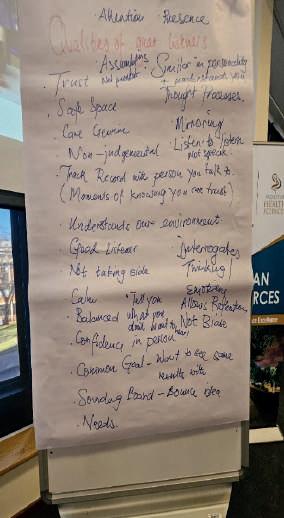 · Attention Presence
Qualities of great listeners
· Assumptions
· Similar in personality
Trust
understands your
Thought Processes.
· Safe Space
· Care Genuine
· Mirroring
· Non-judgemental
· Listen to listen
not speak.
· Track Record with person you talk to.
(Moments of knowing you can trust)
· Understands our environment.
· Good Listener
· Interrogates
Thinking
· Not taking side
· Calm
· Tell you
what you
don't want to
hear
Emotions
Allows
· Balanced
Not Biase
· Confidence in person
· Common Goal - want to see same
results with
· Sounding Board - Bounce idea
· Needs.
HEALTH
SCIENCES
AN
RCES